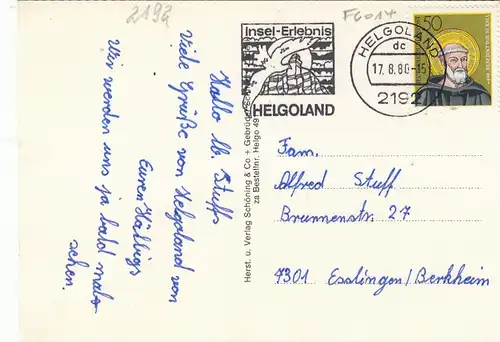 2192
F6014
Insel-Erlebnis
HELGOLAND
HELGOLAND
dc
17.8.80-15
2192
50
Hallo lb. Stuffs
Viele Grüße von Helgoland von
Euren Hälbigs
Wir werden uns ja bald mal
sehen.
Herst. u. Verlag Schöning & Co + Gebrüder
za Bestellnr. Helgo 49
Fam.
Alfred Stuff
Brunnenstr. 27
7301 Esslingen/Berkheim